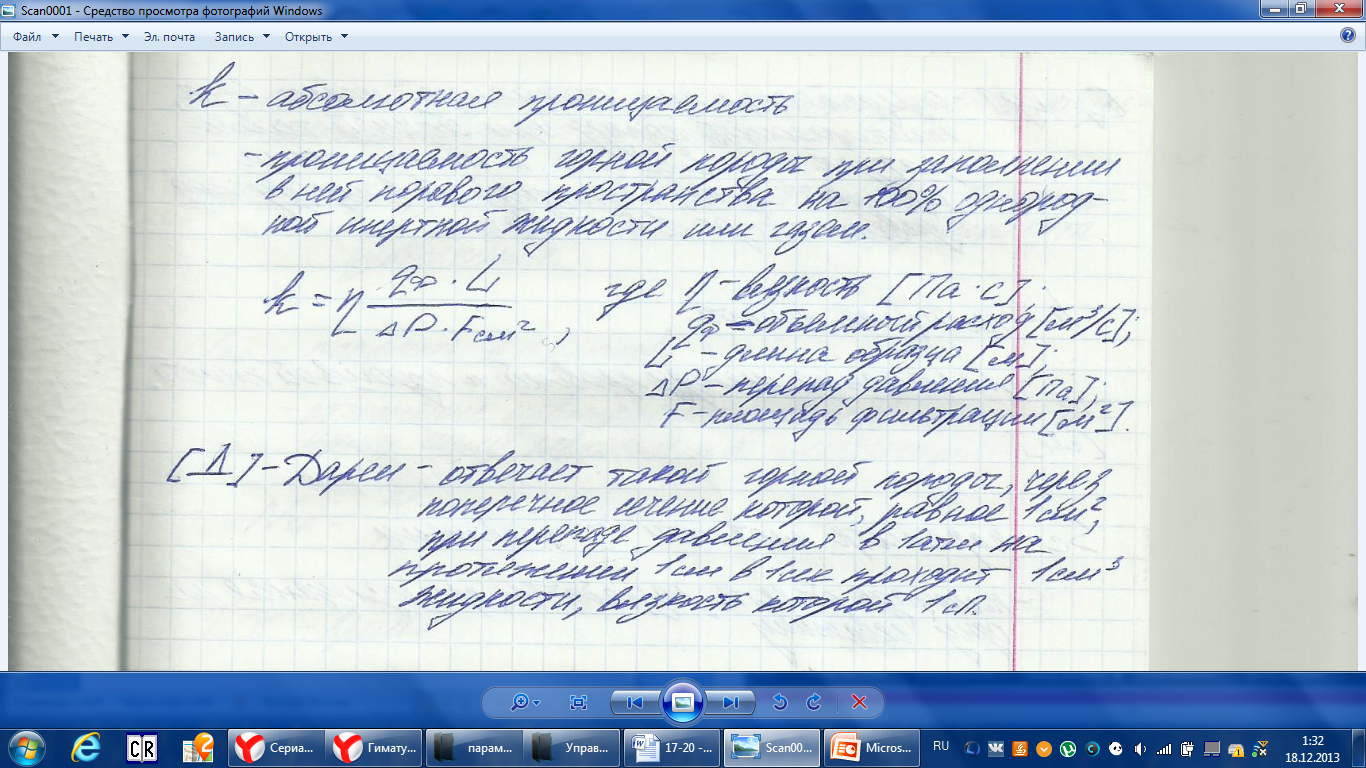 Scan0001 - Средство просмотра фотографий Windows
Файл Печать Эл. почта Запись Открыть
k - абсолютная проницаемость
- проницаемость горной породы при заполнении
в ней порового пространства на 100% однород-
ной инертной жидкости или газом.
k = η qф · L / ΔP · F см², где η - вязкость [Па · с];
qф - объемный расход [см³/с];
L - длина образца [см];
ΔP - перепад давления [Па];
F - площадь фильтрации [см²].
[Д] - Дарси - отвечает такой горной породы, через
поперечное сечение которой, равное 1 см²,
при перепаде давления в 1 атм на
протяжении 1 см в 1 сек проходит 1 см³
жидкости, вязкость которой 1 сП.
CR Сериа... Гимату... парам... Управ... 17-20 -... Scan00... Micros... RU 1:32
18.12.2013